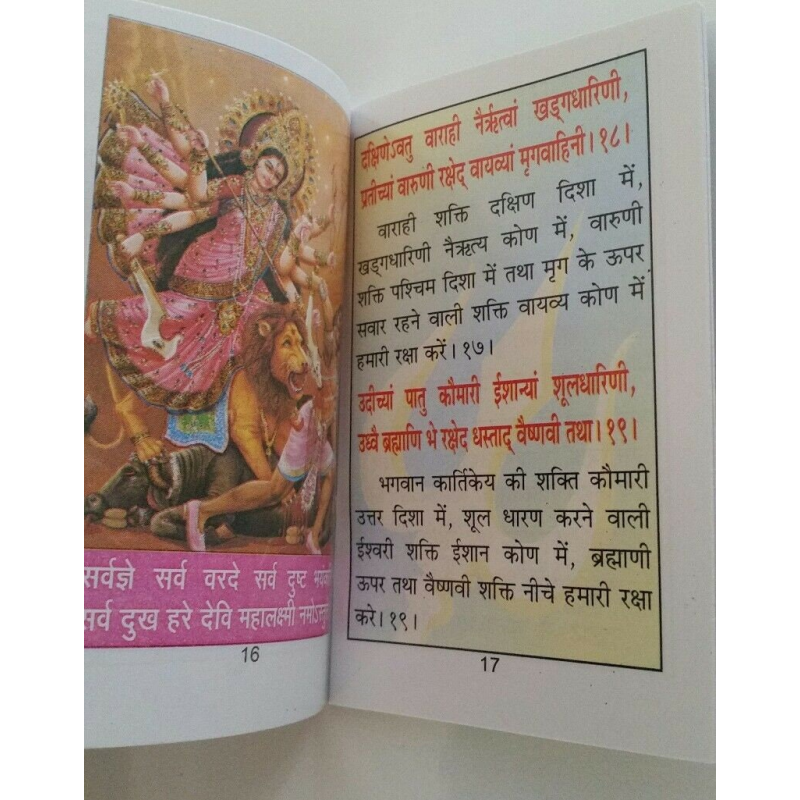 सर्वज्ञे सर्व वरदे सर्व दुष्ट
सर्व दुख हरे देवि महालक्ष्मी
16
दक्षिणेऽवतु वाराही नैर्ऋत्वां खड्गधारिणी,
प्रतीच्यां वारुणी रक्षेद् वायव्यां मृगवाहिनी।१८।
वाराही शक्ति दक्षिण दिशा में,
खड्गधारिणी नैऋत्य कोण में, वारुणी
शक्ति पश्चिम दिशा में तथा मृग के ऊपर
सवार रहने वाली शक्ति वायव्य कोण में
हमारी रक्षा करें।१७।
उदीच्यां पातु कौमारी ईशान्यां शूलधारिणी,
उध्वै ब्रह्माणि भे रक्षेद धस्ताद् वैष्णवी तथा।१९।
भगवान कार्तिकेय की शक्ति कौमारी
उत्तर दिशा में, शूल धारण करने वाली
ईश्वरी शक्ति ईशान कोण में, ब्रह्माणी
ऊपर तथा वैष्णवी शक्ति नीचे हमारी रक्षा
करे।१९।
17